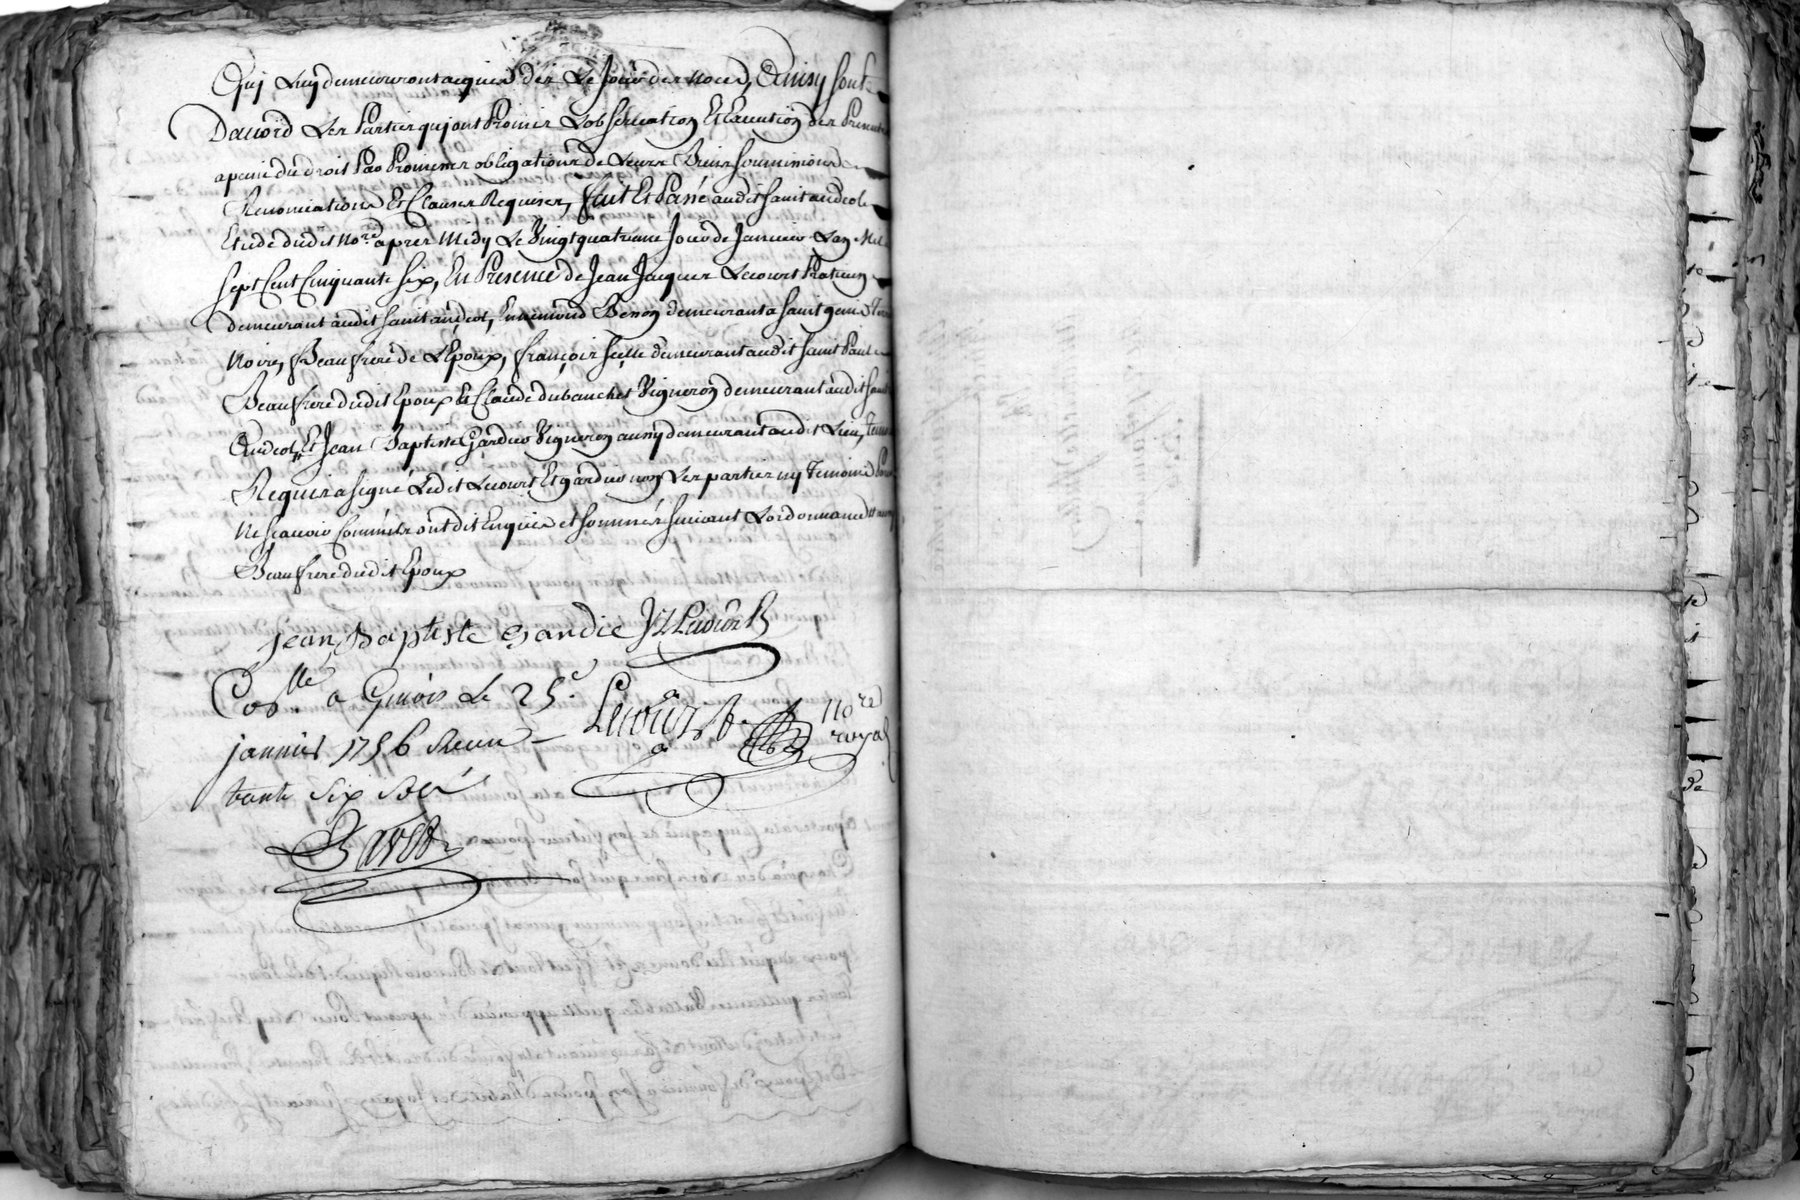 Qui Luy demeureront acquis dès Le Jour des noces, Ainsy sont
Dacord Les Parties qui ont Promis Lobservation Et Execution des Presente
a peine du droit Par Promesses obligations de Leurs Biens soummissions
Renonciations Et Clauses Requises, fait Et Passé audit saint andeol
Etude dudit no.re apres Midy Le Vingt quatrieme Jour de Janvier Lan Mil
sept Cent Cinquante six, En Presence de Jean Jacques Lecourt Praticien
demeurant audit saint andeol, Ennemond Besson demeurant a saint genis Terre
Noire, Beaufrere de L'Epoux, françois demeurant audit saint Paul
Beaufrere dudit Epoux Et Claude dubanchet Vigneron demeurant audit saint
Andeol, Et Jean Baptiste Gardier Vigneron aussy demeurant audit Lieu,
Requis a signé Ledit Lecourt Et gardier non Les parties ny Temoins Pour
Ne scavoir Comme ils ont dit Enquis et sommés suivant Lordonnance
Beaufrere dudit Epoux
jean Baptiste gardie JJ Lecourt
Con.lle a Givors Le 25.e
Lecourt No.re royal
janvier 1756 Receu
six sols